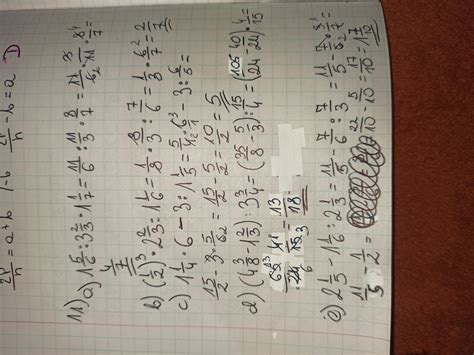 2r/h = a+b /-b 2r/h - b = a D)
11) a) 1 5/6 : 3 2/3 · 1 1/7 = 11/6 : 11/3 · 8/7 = 11/6 · 3/11 · 8/7 =
4/7
b) (1/2)³ · 2 2/3 : 1 1/6 = 1/8 · 8/3 : 7/6 = 1/3 · 6/7 = 2/7
c) 1 1/4 · 6 - 3 : 1 1/5 = 5/4 · 6 - 3 : 6/5 =
15/2 - 3 · 5/6 = 15/2 - 5/2 = 10/2 = 5
d) (4 3/8 - 1 2/3) : 3 3/4 = (35/8 - 5/3) : 15/4 = (105/24 - 40/24) · 4/15
65/24 · 4/15 = 13/18
e) 2 1/5 - 1 1/6 : 2 1/3 = 11/5 - 7/6 : 7/3 = 11/5 - 7/6 · 3/7
11/5 - 1/2 = 22/10 - 5/10 = 17/10 = 1 7/10